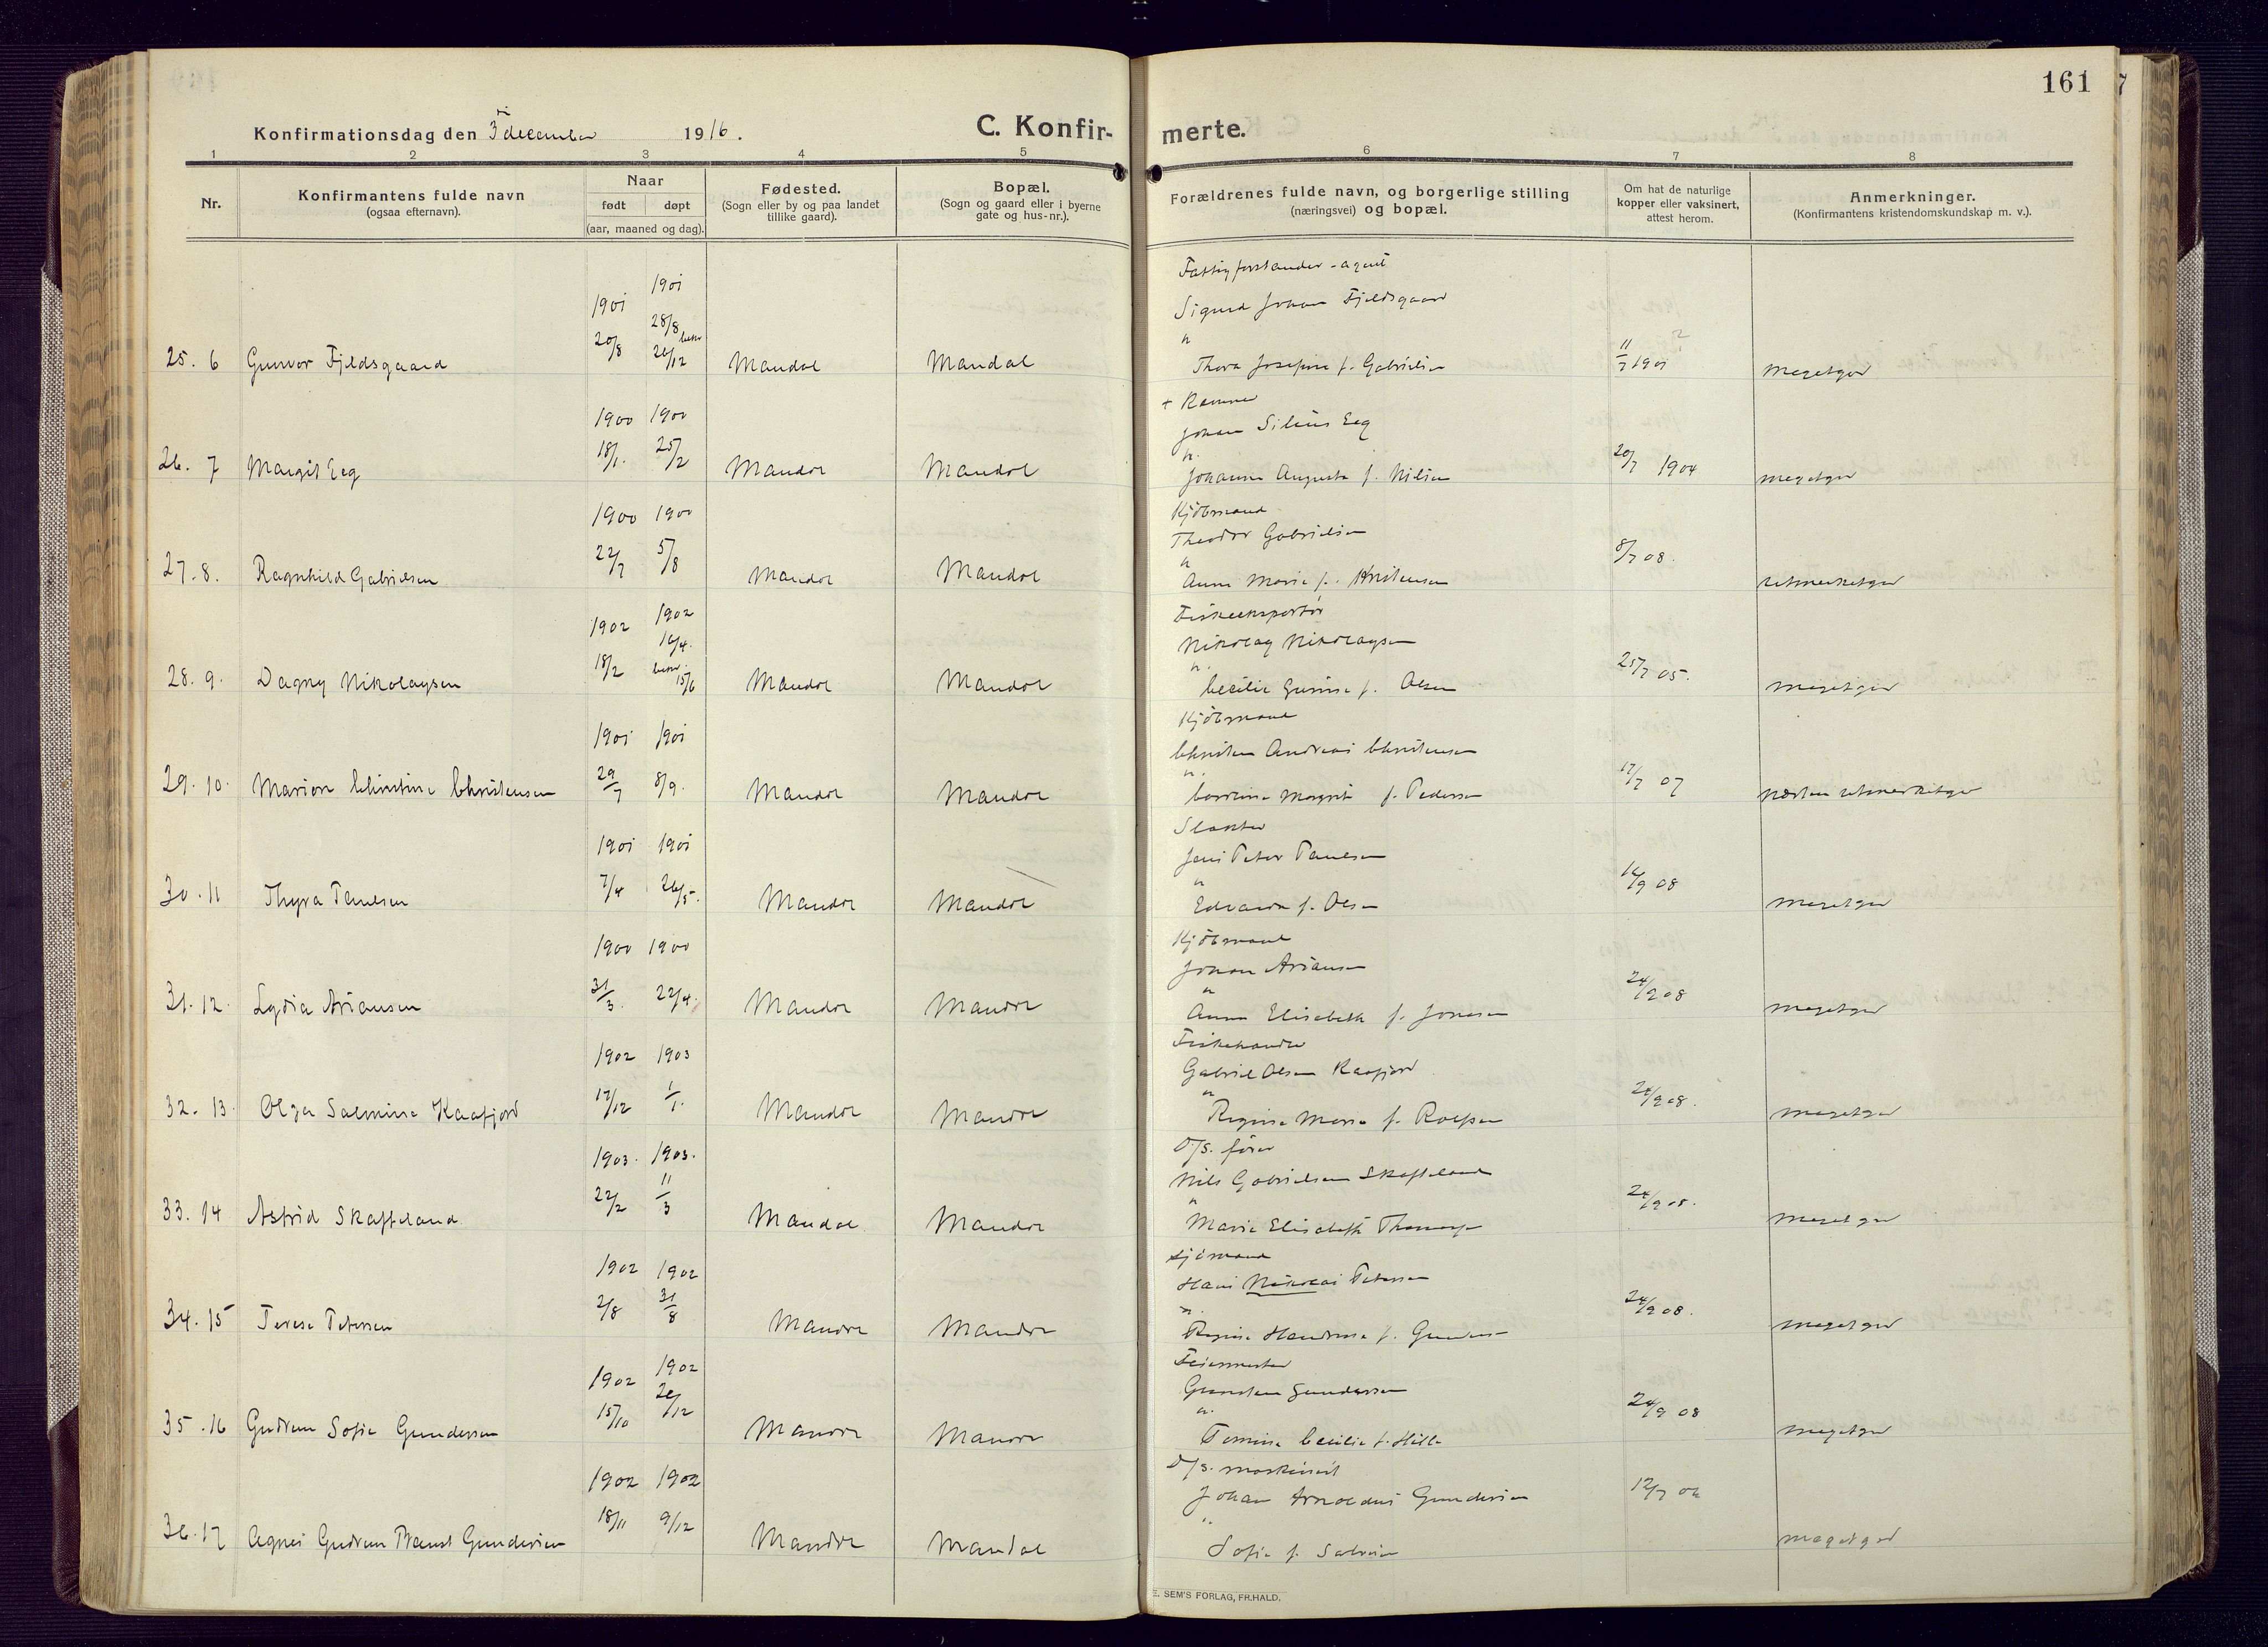 161
Konfirmationsdag den 3 december 1916.
C. Konfirmerte.
1 2 3 4 5 6 7 8
Nr.
Konfirmantens fulde navn
(ogsaa efternavn).
Naar
født døpt
(aar, maaned og dag).
Fødested.
(Sogn eller by og paa landet
tillike gaard).
Bopæl.
(Sogn og gaard eller i byerne
gate og hus-nr.).
Forældrenes fulde navn, og borgerlige stilling
(næringsvei) og bopæl.
Om hat de naturlige
kopper eller vaksinert,
attest herom.
Anmerkninger.
(Konfirmantens kristendomskundskap m. v.).
Fattigforstander - agent
1901 1901 Sigurd Johan Fjeldsgaard
20/8 28/8 bekr ?
25. 6 Gunvor Fjeldsgaard 26/12 Mandal Mandal Thora Josefine f. Gabrielsen 11/7 1901 megetgod
1900 1900 + Rentier
Johan Silius Eeg
18/1. 25/2
26. 7 Margit Eeg Mandal Mandal Johanne Augusta f. Nilsen 20/7 1904 megetgod
1900 1900 Kjöbmand
Theodor Gabrielsen
22/7 5/8
27. 8. Ragnhild Gabrielsen Mandal Mandal Anna Marie f. Kristensen 8/7 08. utmerketgod
1902 1902 Fiskeeksportör
16/4. Nikolay Nikolaysen
18/2 bekr. 15/6
28. 9. Dagny Nikolaysen Mandal Mandal Cecilie Gurine f. Olsen 25/7 05. megetgod
1901 1901 Kjöbmand
Christen Andreas Christensen
29/7 8/9.
29. 10. Marion Christine Christensen Mandal Mandal f. Pedersen 17/7 07 næsten utmerketgod
1901 1901 Slakter
Jens Peter Paulsen
7/4 26/5.
30. 11 Thyra Paulsen Mandal Mandal Edvarda f. Olsen 16/9 08 megetgod
1900 1900 Kjöbmand
Johan Ariansen
31/3. 22/4.
31. 12. Lydia Ariansen Mandal Mandal Anna Elisabeth f. Jonassen 24/9 08 megetgod
1902 1903 Fiskehandler
Gabriel Olsen Kaafjord
17/12 1/1.
32. 13. Olga Salmine Kaafjord Mandal Mandal Regine Marie f. Rolfsen 24/9 08. megetgod
1903. 1903. D/s. fører
Nils Gabrielsen Skaffeland
22/2 11/3
33. 14 Astrid Skaffeland Mandal Mandal Marie Elisabeth Thomassen 24/9 08. megetgod
1902 1902 Sjömand
Hans Nikolai Petersen
2/8 31/8
34. 15 Terese Petersen Mandal Mandal Regine f. 24/9 08. megetgod
1902 1902 Feiermester
Gunsten Gundersen
15/10 26/12
35. 16 Gudrun Sofie Gundersen Mandal Mandal Tomine Cecilie f. Hille 24/9 08 megetgod
1902 1902 D/s. maskinist
Johan Arnoldus Gundersen
18/11 9/12
36. 17 Agnes Gudrun Gundersen Mandal Mandal Sofie f. Salvesen 12/7 06 megetgod
E. SEM'S FORLAG, FR.HALD.